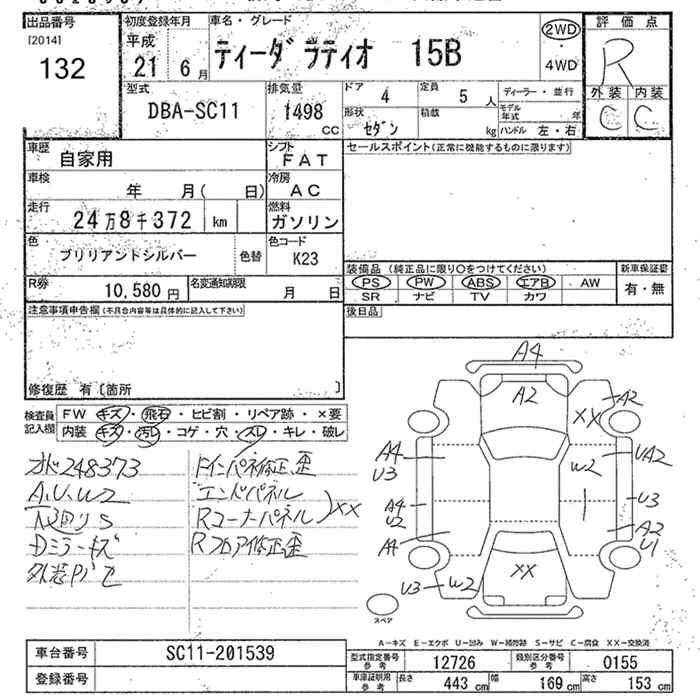 出品番号
[2014]
132
初度登録年月
平成
21 6月
車名・グレード
ティーダ ラティオ 15B
2WD
・
4WD
評価点
R
外装 内装
C C
型式
DBA-SC11
排気量
1498
CC
ドア 4
定員 5 人
ディーラー・並行
モデル年式 年
形状 セダン
積載 kg
ハンドル 左・右
車歴 自家用
シフト FAT
セールスポイント(正常に機能するものに限ります)
車検 年 月( 日)
冷房 AC
走行 24万8千372 km
燃料 ガソリン
色 ブリリアントシルバー
色替
色コード K23
装備品 (純正品に限り○をつけてください)
新車保証書
PS PW ABS エアB AW
有・無
SR ナビ TV カワ
R券 10,580 円
名変通知期限 月 日
後日品
注意事項申告欄(不具合内容等は具体的に記入して下さい)
修復歴 有 [箇所 ]
検査員
記入欄
FW キズ・飛石・ヒビ割・リペア跡・×要
内装 キズ・汚レ・コゲ・穴・スレ・キレ・破レ
オド248373
A.U.W2
N廻りS
Dミラーキズ
外装P/Z
ドインパネ修正、歪
エンドパネル
RコーナーパネルXX
Rフロア修正歪
A4
A2
XX
A2
A4
U3
W2
UA2
A4
U2
U3
A4
A2
U1
XX
U3
W2
スペア
A-キズ E-エクボ U-凹み W-補修跡 S-サビ C-腐食 XX-交換済
車台番号 SC11-201539
登録番号
型式指定番号
参考
12726
類別区分番号
参考
0155
車庫証明用
参考
長さ 443 cm
幅 169 cm
高さ 153 cm